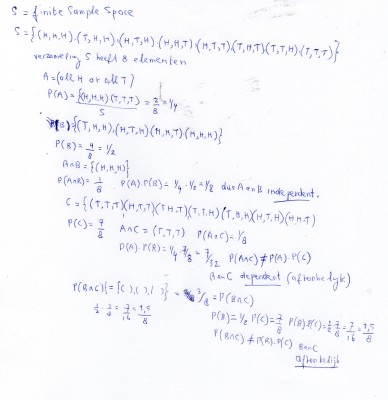 S = finite Sample Space
S = {(H,H,H),(T,H,H),(H,T,H),(H,H,T),(H,T,T)(T,H,T)(T,T,H),(T,T,T)}
verzameling S heeft 8 elementen
A = (all H or all T)
P(A) = {(H,H,H)(T,T,T)} / S = 2/8 = 1/4
{(T,H,H),(H,T,H)(H,H,T)(H,H,H)}
P(B) = 4/8 = 1/2
A∩B = {(H,H,H)}
P(A∩B) = 1/8 P(A).P(B) = 1/4 . 1/2 = 1/8 dus A en B independent.
C = {(T,T,T)(H,T,T)(T,H,T)(T,T,H)(T,H,H)(H,T,H)(H,H,T)
P(C) = 7/8 A∩C = (T,T,T) P(A∩C) = 1/8
P(A).P(B) = 1/4 . 7/8 = 7/32 P(A∩C) ≠ P(A).P(C)
B∩C dependent (afhankelijk)
P(B∩C) = {( ),( ),( )} = 3/8 = P(B∩C)
= 7/16 = 3,5/8
P(B) = 1/2 P(C) = 7/8 P(B).P(C) = 1/2 . 7/8 = 7/16 = 3,5/8
P(B∩C) ≠ P(B).P(C) B∩C
afhankelijk